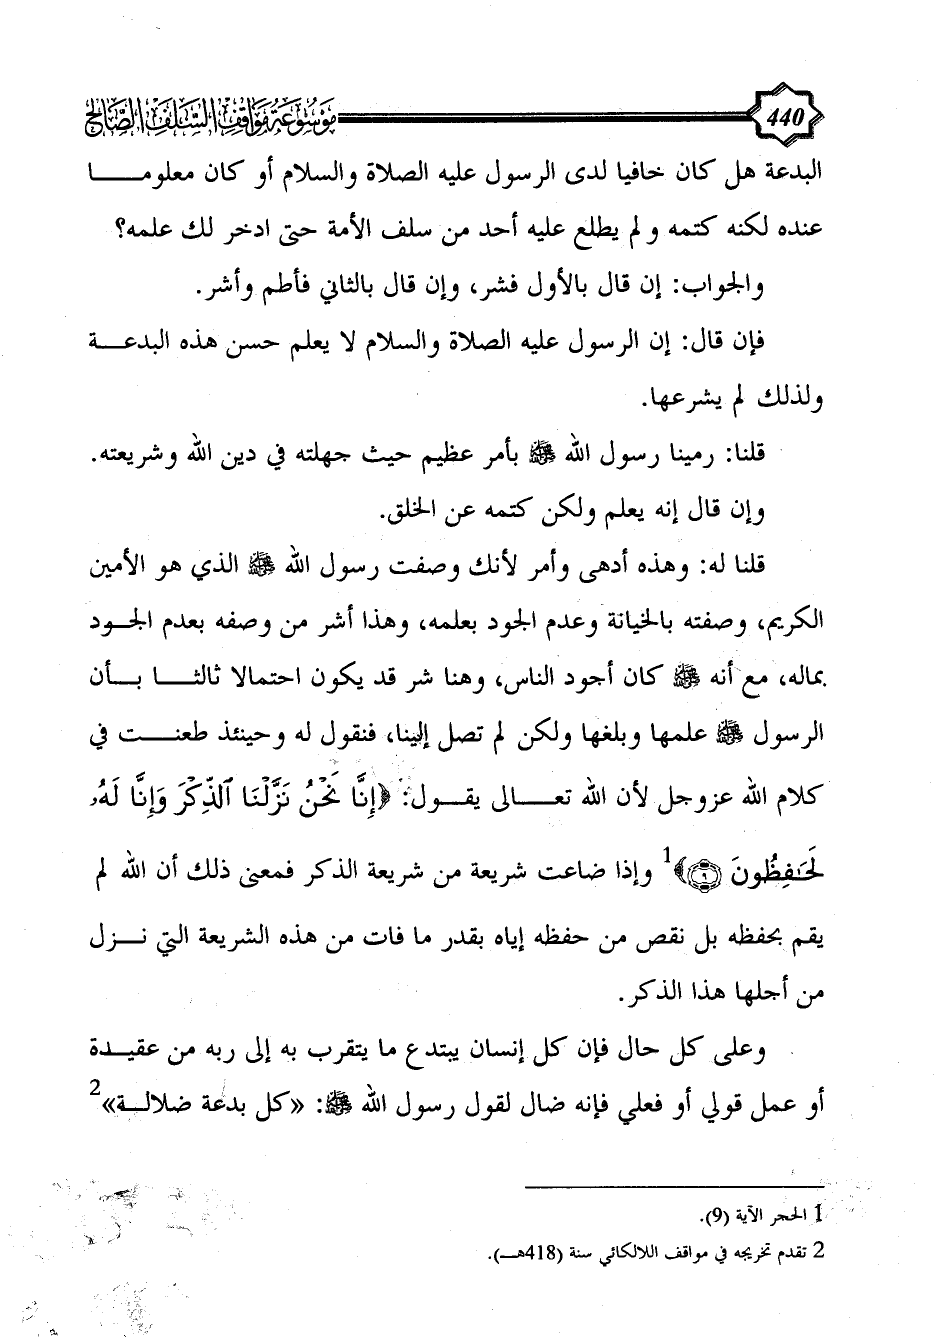 440
موسوعة مواقف السلف الصالح
البدعة هل كان خافيا لدى الرسول عليه الصلاة والسلام أو كان معلومـــــا
عنده لكنه كتمه ولم يطلع عليه أحد من سلف الأمة حتى ادخر لك علمه؟
والجواب: إن قال بالأول فشر، وإن قال بالثاني فأطم وأشر.
فإن قال: إن الرسول عليه الصلاة والسلام لا يعلم حسن هذه البدعـــة
ولذلك لم يشرعها.
قلنا: رمينا رسول الله ﷺ بأمر عظيم حيث جهلته في دين الله وشريعته.
وإن قال إنه يعلم ولكن كتمه عن الخلق.
قلنا له: وهذه أدهى وأمر لأنك وصفت رسول الله ﷺ الذي هو الأمين
الكريم، وصفته بالخيانة وعدم الجود بعلمه، وهذا أشر من وصفه بعدم الجـود
بماله، مع أنه ﷺ كان أجود الناس، وهنا شر قد يكون احتمالا ثالثـــا بـــأن
الرسول ﷺ علمها وبلغها ولكن لم تصل إلينا، فنقول له وحينئذ طعنـــت في
كلام الله عزوجل لأن الله تعـــالى يقـــول: ﴿إِنَّا نَحْنُ نَزَّلْنَا ٱلذِّكْرَ وَإِنَّا لَهُۥ
لَحَـٰفِظُونَ ٩﴾1 وإذا ضاعت شريعة من شريعة الذكر فمعنى ذلك أن الله لم
يقم بحفظه بل نقص من حفظه إياه بقدر ما فات من هذه الشريعة التي نـــزل
من أجلها هذا الذكر.
وعلى كل حال فإن كل إنسان يبتدع ما يتقرب به إلى ربه من عقيـدة
أو عمل قولي أو فعلي فإنه ضال لقول رسول الله ﷺ: «كل بدعة ضلالـة»2
1 الحجر الآية (9).
2 تقدم تخريجه في مواقف اللالكائي سنة (418هـــ).